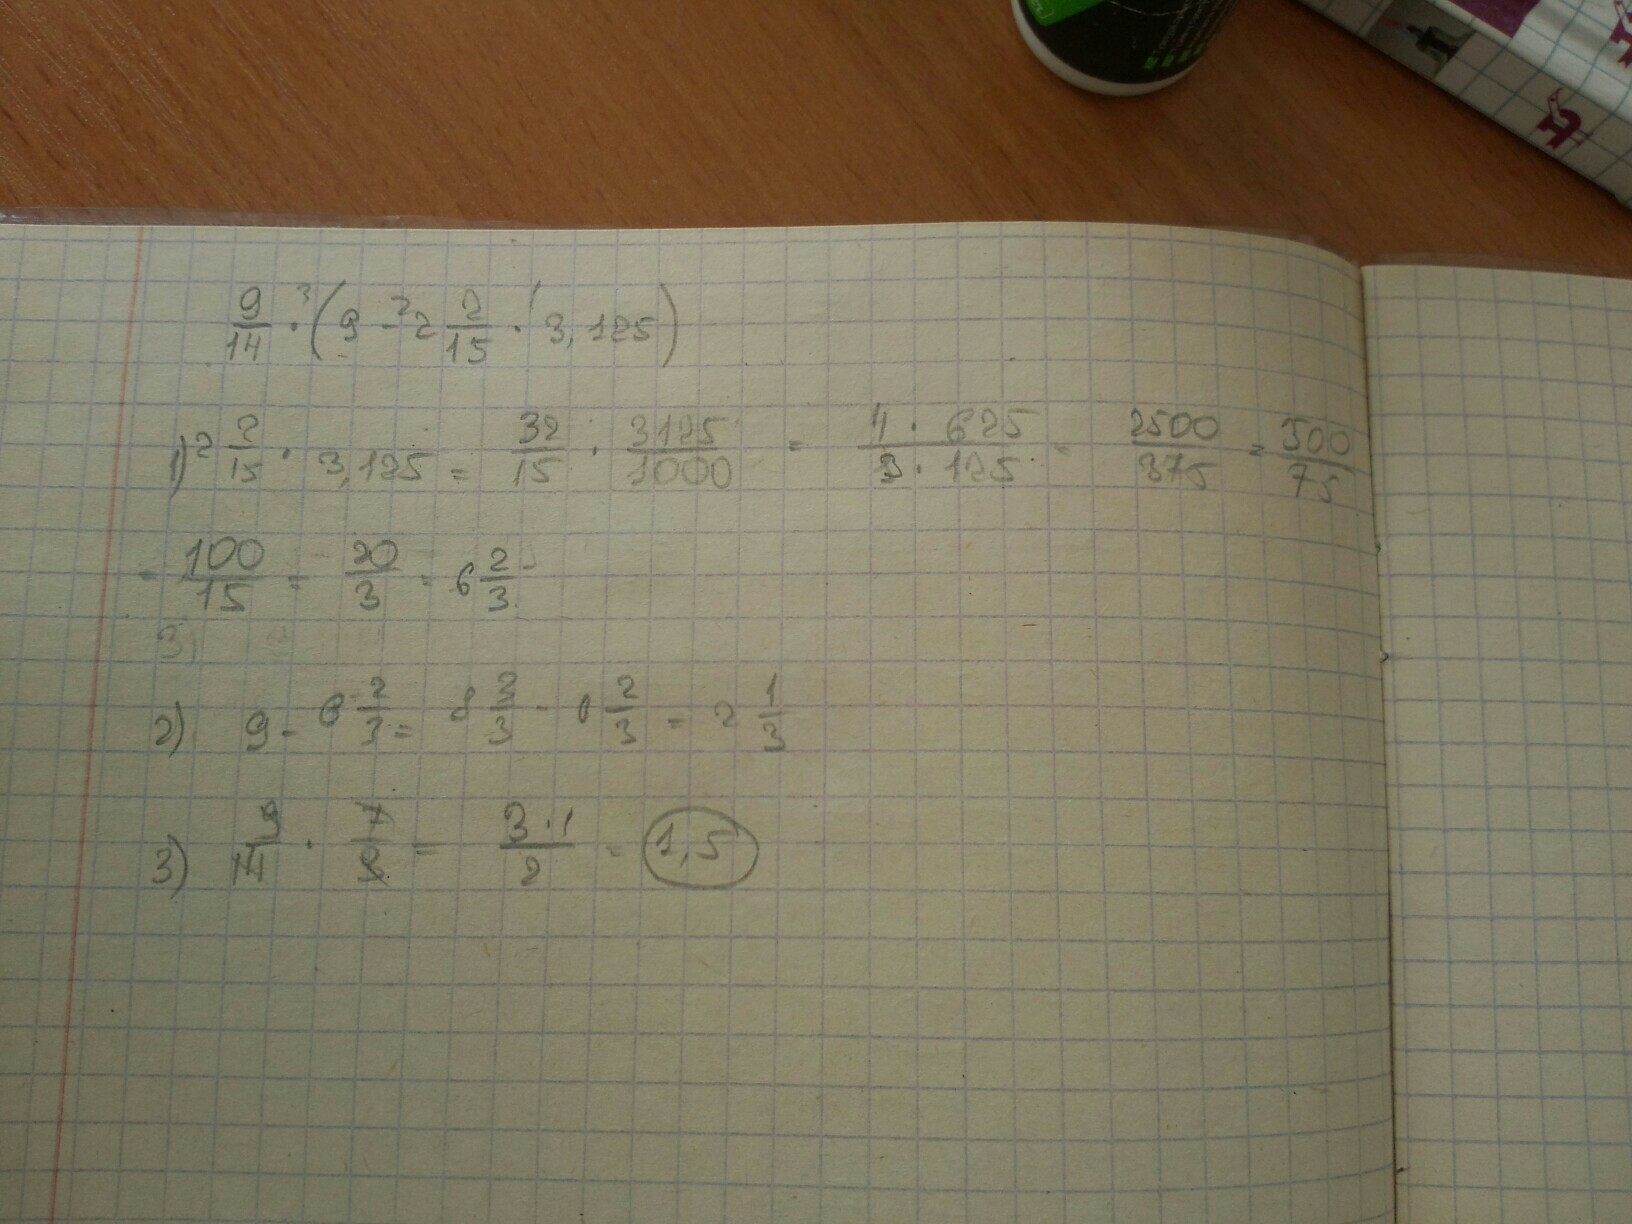 9/14 · (9 - 2 2/15 · 3,125)
1) 2 2/15 · 3,125 = 32/15 · 3125/1000 = 4 · 625/3 · 125 = 2500/375 = 500/75
= 100/15 = 20/3 = 6 2/3
2) 9 - 6 2/3 = 8 3/3 - 6 2/3 = 2 1/3
3) 9/14 · 7/3 = 3 · 1/2 = 1,5